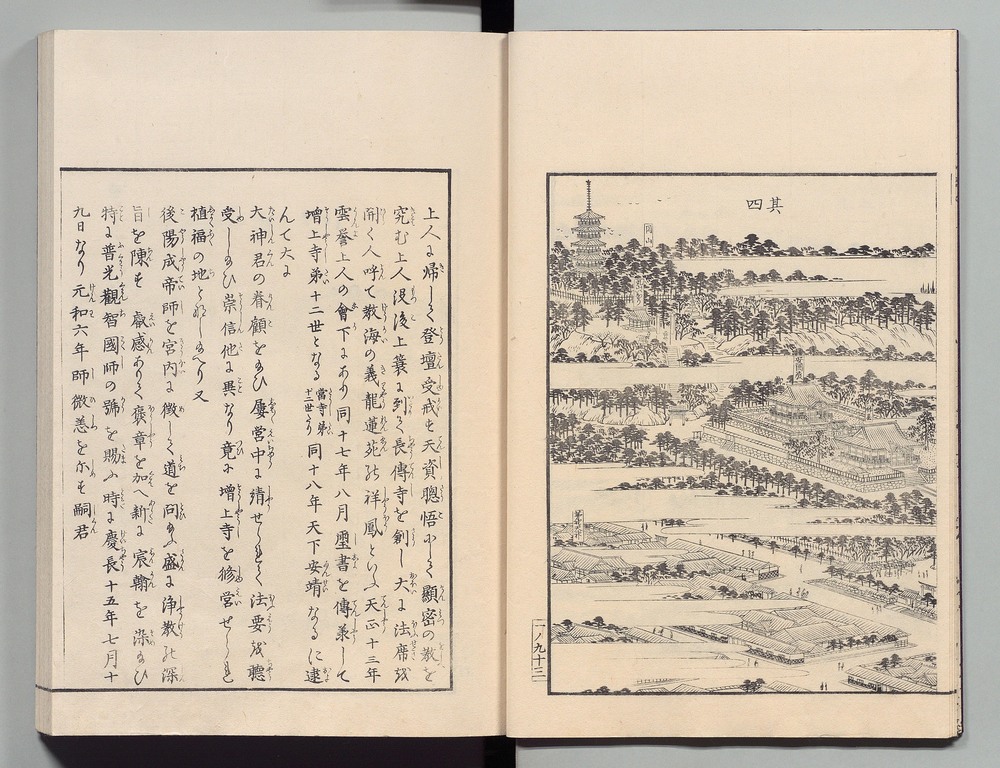 其四
圓山
安國殿
一ノ九十三
上人に帰して登壇受戒す天資聰悟にして顯密の教を
究む上人没後上䕃に到て長傳寺を創し大に法席を
開く人呼て教海の義龍蓮苑の祥鳳といふ天正十三年
雲譽上人の會下にあり同十七年八月璽書を傳承して
増上寺第十二世となる當寺第十二世なり同十八年天下安靖なるに逮
んて大に
大神君の眷顧をまひ屢営中に請せられて法要を聽
受しまひ崇信他に異なり竟に増上寺を修営せられ
植福の地となしまへり又
後陽成帝師を宮内に徴して道を問ふ盛に浄教の深
旨を陳す叡感ありて褒章を加へ新に宸翰を染まひ
特に普光觀智國師の號を賜ふ時に慶長十五年七月十
九日なり元和六年師微恙を示す嗣君